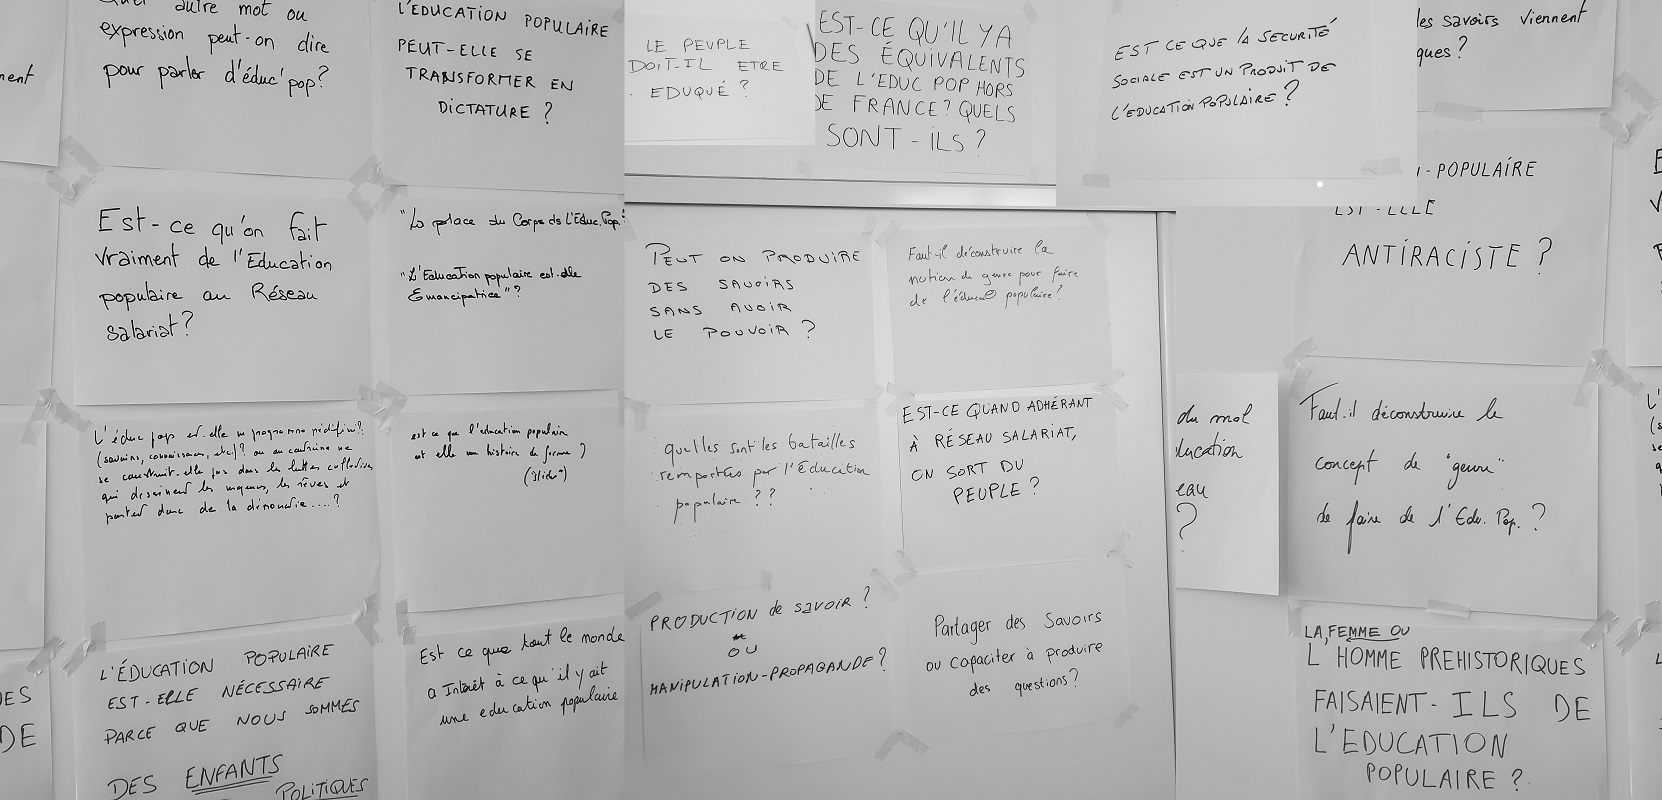 autre mot ou
expression peut-on dire
pour parler d'éduc' pop?
L'EDUCATION POPULAIRE
PEUT-ELLE SE
TRANSFORMER EN
DICTATURE ?
LE PEUPLE
DOIT-IL ETRE
EDUQUÉ ?
EST-CE QU'IL Y A
DES ÉQUIVALENTS
DE L'EDUC POP HORS
DE FRANCE? QUELS
SONT-ILS ?
EST CE QUE LA SECURITÉ
SOCIALE EST UN PRODUIT DE
L'EDUCATION POPULAIRE ?
les savoirs viennent
ques ?
Est-ce qu'on fait
vraiment de l'Education
populaire au Réseau
salariat?
"La place du Corps ds L'Educ. Pop."
"L'Education populaire est-elle
Emancipatrice"?
PEUT ON PRODUIRE
DES SAVOIRS
SANS AVOIR
LE POUVOIR ?
Faut-il déconstruire la
notion de genre pour faire
de l'éducat° populaire?
-POPULAIRE
EST-ELLE
ANTIRACISTE ?
L'éduc pop est-elle un programme prédéfini?
(savoirs, connaissances, etc)? ou au contraire ne
se construit-elle pas dans les luttes collectives
qui dessinent les moyens, les rêves et
partent donc de la
est ce que l'education populaire
est elle une histoire de forme ?
quelles sont les batailles
remportées par l'Éducation
populaire ??
EST-CE QUAND ADHÉRANT
À RÉSEAU SALARIAT,
ON SORT DU
PEUPLE ?
du mot
ducation
eau
?
Faut-il déconstruire le
concept de "genre"
de faire de l'Edu. Pop. ?
L'ÉDUCATION POPULAIRE
EST-ELLE NÉCESSAIRE
PARCE QUE NOUS SOMMES
DES ENFANTS
POLITIQUES
Est ce que tout le monde
a Intérêt à ce qu'il y ait
une education populaire
PRODUCTION de SAVOIR ?
OU
MANIPULATION-PROPAGANDE ?
Partager des Savoirs
ou capaciter à produire
des questions?
LA FEMME OU
L'HOMME PREHISTORIQUES
FAISAIENT-ILS DE
L'EDUCATION
POPULAIRE ?
DE